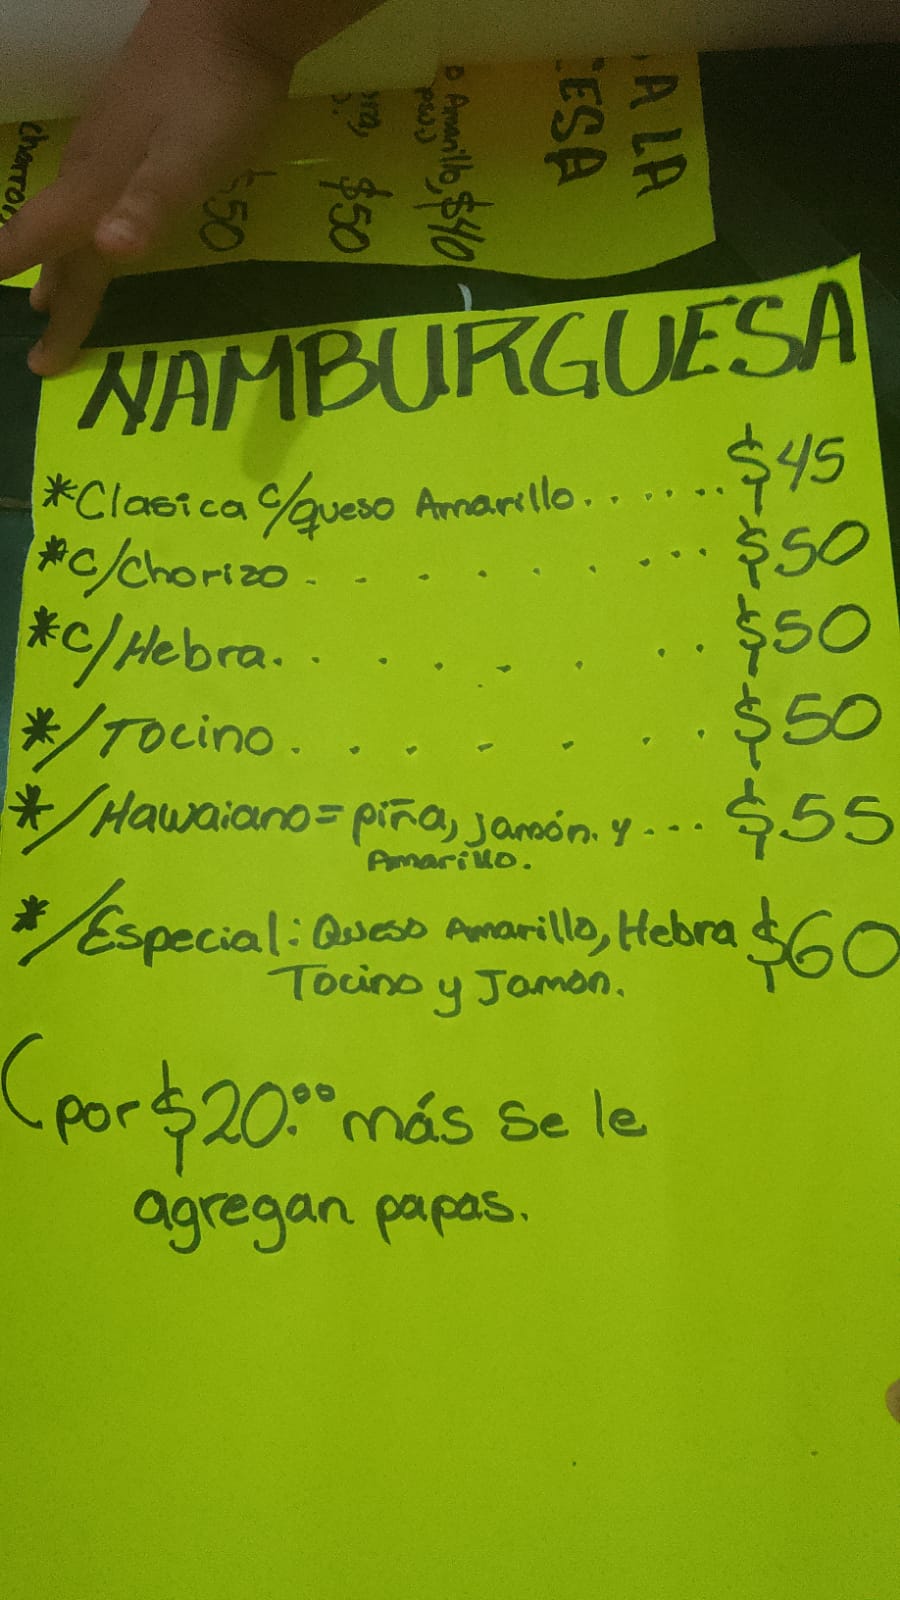 A LA
ESA
Amarillo, $40
$50
$50
charro
HAMBURGUESA
*Clasica c/queso Amarillo........ $45
*c/chorizo......... $50
*c/Hebra........ $50
*/Tocino........ $50
*/Hawaiano= piña, jamón. y... $55
Amarillo.
*/Especial: Queso Amarillo, Hebra $60
Tocino y Jamon.
(por $20.00 más se le
agregan papas.